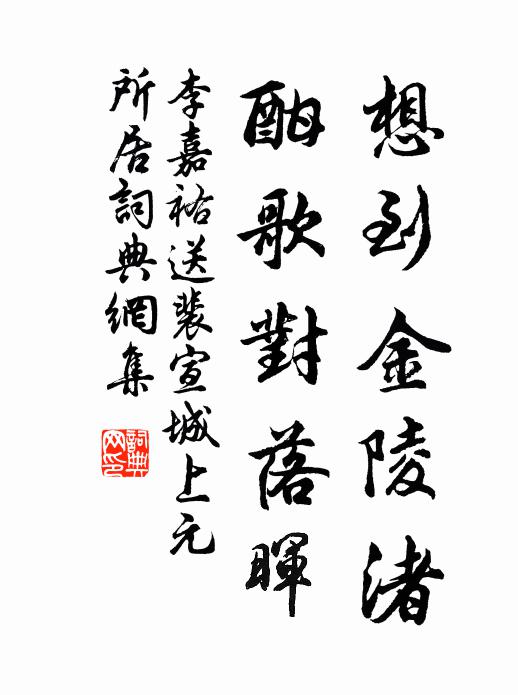 想到金陵渚
酣歌對落暉
李嘉祐送裴宣城上元
所居詞典網集
詞典網印